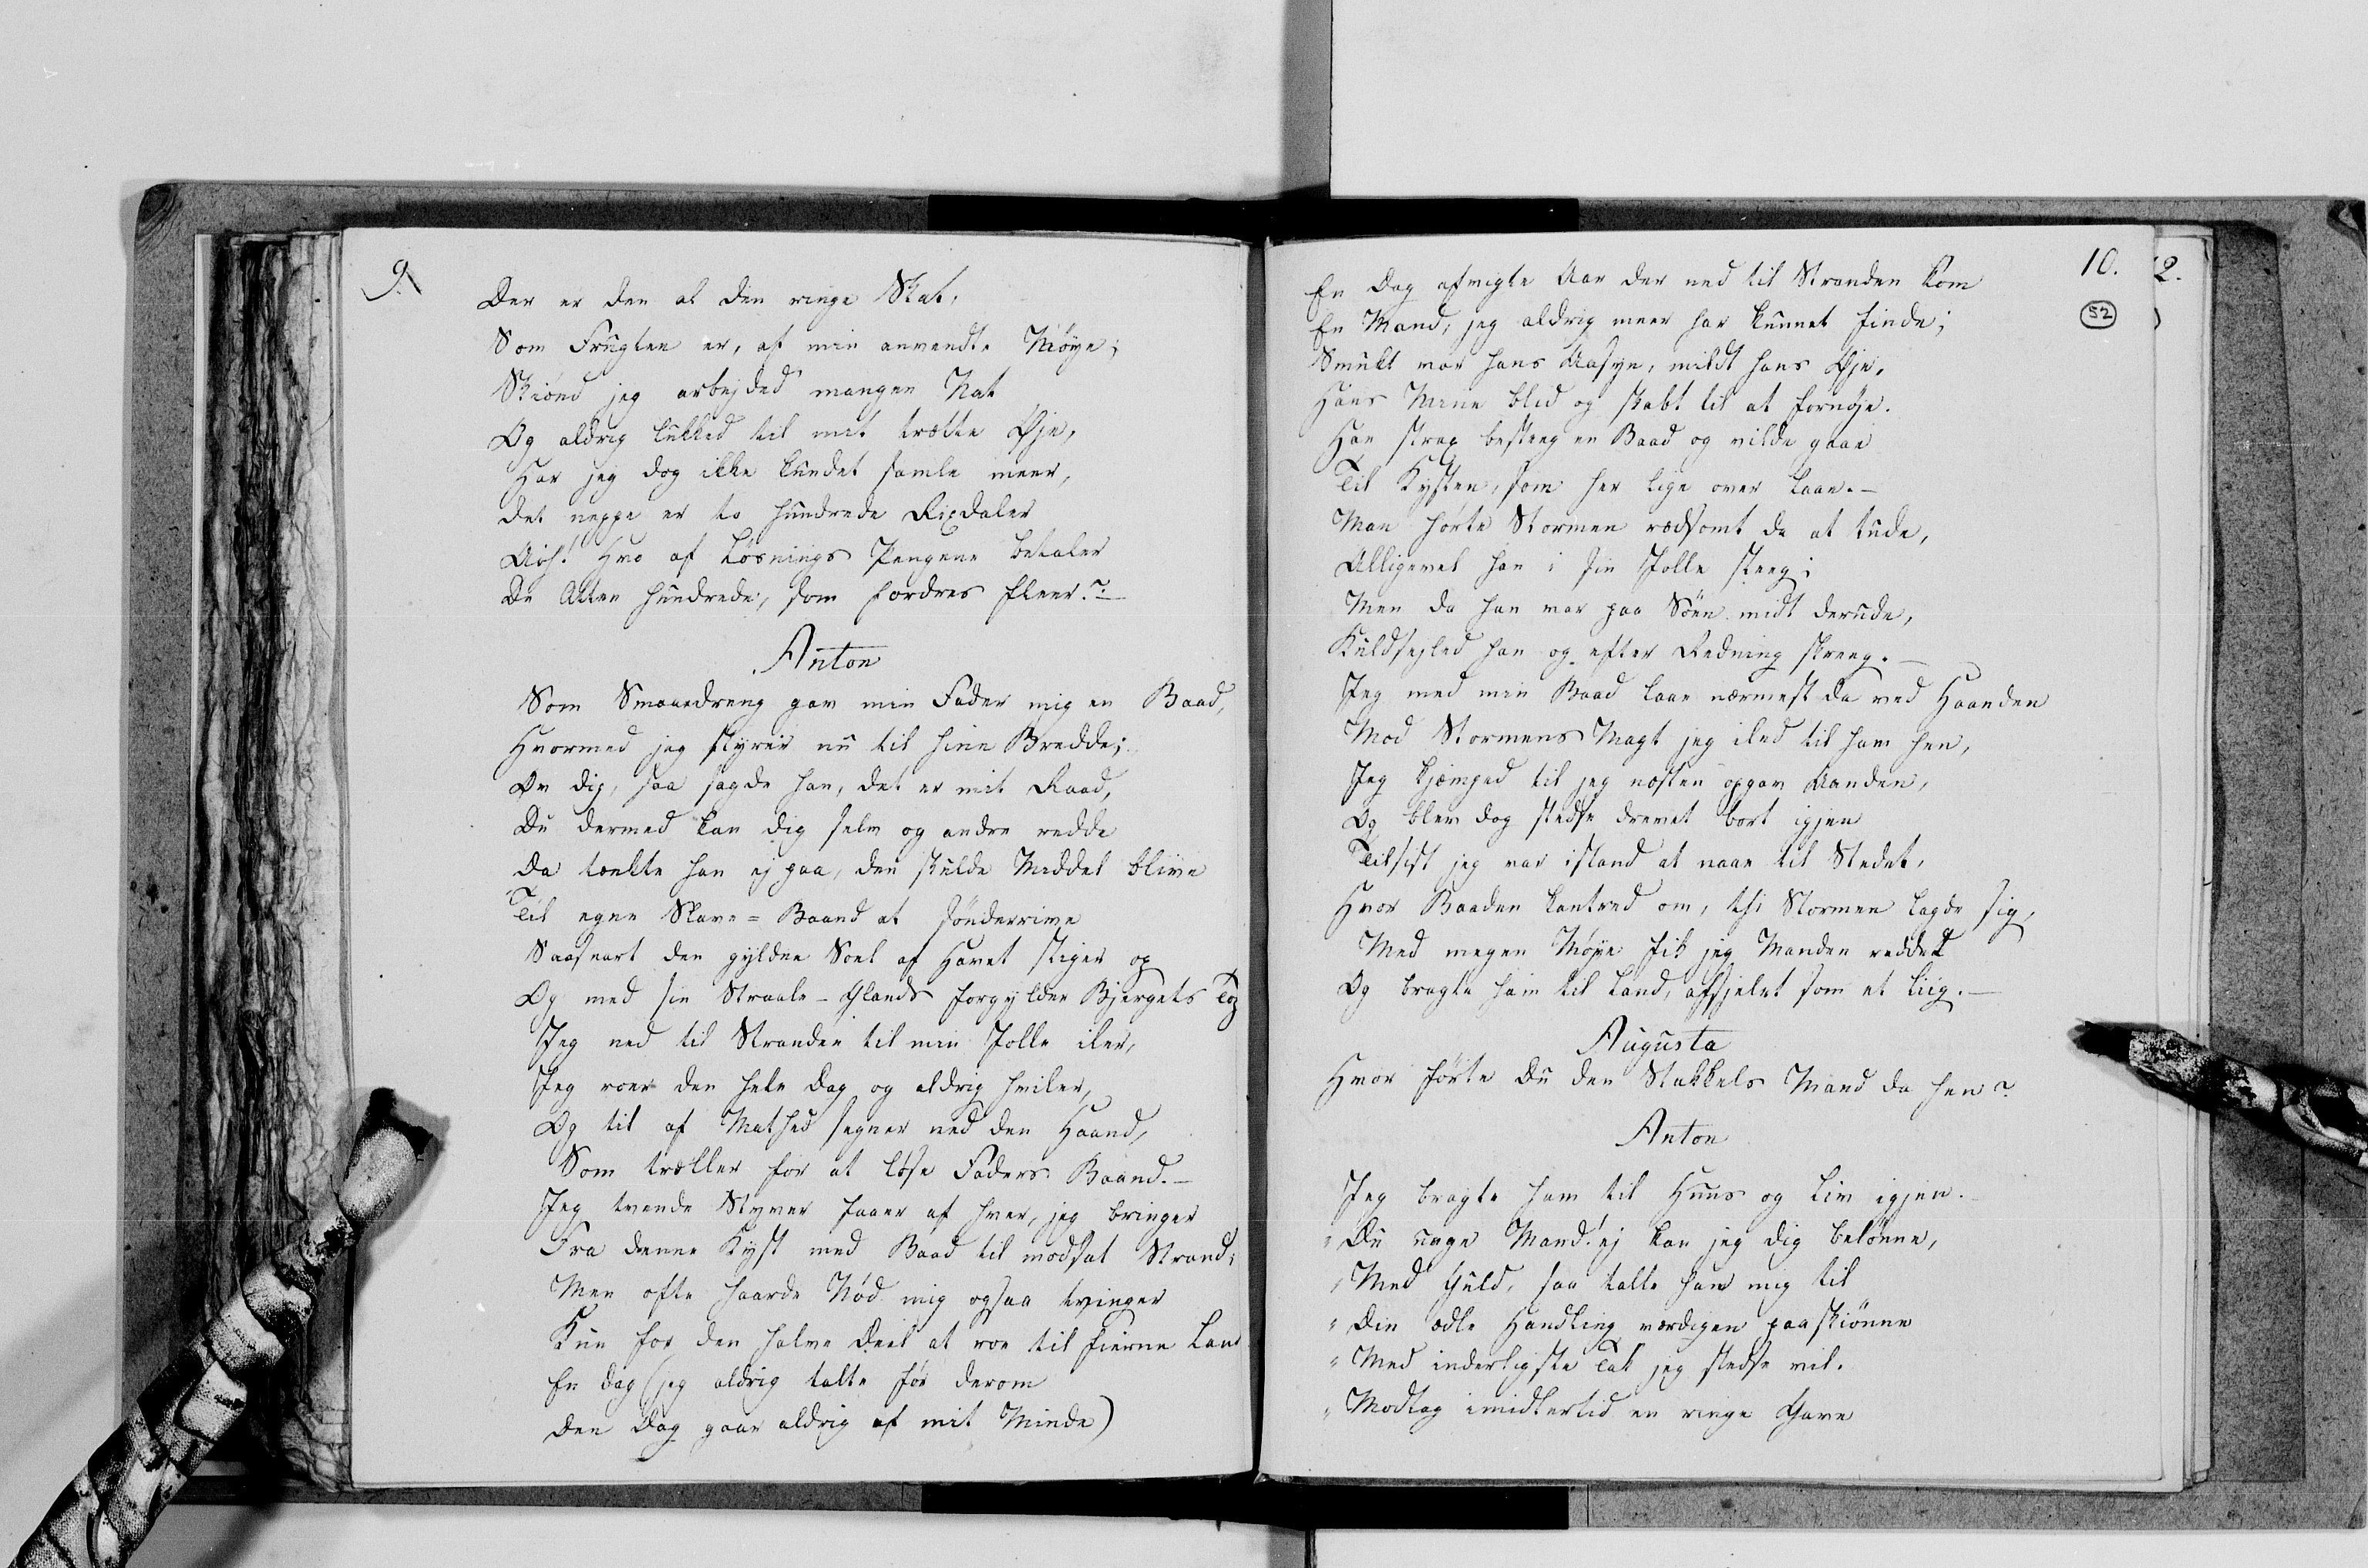 9.
Der er den al den ringe Skat,
Som Frugten er, af min anvendte Møye;
Skiønd jeg arbejded mangen Nat
Og aldrig lukked til mit trætte Øje,
Har jeg dog ikke kundet samle meer,
Det neppe er to hundrede Rixdaler
Ach! Hvo af Løsnings Pengene betaler
De Atten hundrede, som fordres fleer.?
Anton
Som Smaadreng gav min Fader mig en Baad,
Hvormed jeg styrer nu til hine Bredde;
Øv dig, saa sagde han, det er mit Raad,
Du dermed kan dig selv og andre redde
Da tænkte han ej paa, den skulde Middel blive
Til egne Slave-Baand at sønderrive
Saasnart den gyldne Soel af Havet stiger op
Og med sin Straale-Glands forgylder Bjergets Top
Jeg ned til Stranden til min Jolle iler,
Jeg roer den hele Dag og aldrig hviler,
Og tit af Mathed segner ned den Haand,
Som træller for at løse Faders Baand.-
Jeg tvende Styver faaer af hver, jeg bringer
Fra denne Kyst med Baad til modsat Strand;
Men ofte haarde Nød mig ogsaa tvinger
Kun for den halve Deel at roe til fierne Land
En Dag (jeg aldrig talte før derom
Den Dag gaar aldrig af mit Minde)
10.
52
2.
En Dag afvigte Aar der ned til Stranden kom
En Mand, jeg aldrig meer har kunnet finde;
Smukt var hans Aasyn, mildt hans Øje,
Hans Mine blid og skabt til at fornøje.
Han strax besteeg en Baad og vilde gaae
Til Kysten, som her lige over laae.-
Man hørte Stormen rædsomt da at tude,
Alligevel han i sin Jolle steeg;
Men da han var paa Søen midt derude,
Kuldsejled han og efter Redning skreeg.-
Jeg med min Baad laae nærmest da ved Haanden
Mod Stormens Magt jeg iled til ham hen,
Jeg kjæmped til jeg næsten opgav Aanden,
Og blev dog stedse drevet bort igjen
Tilsist jeg var istand at naae til Stedet,
Hvor Baaden kantred om, thi Stormen lagde sig,
Med megen Møye fik jeg Manden reddet
Og bragte ham til Land, afsjelet som et Liig.-
Augusta
Hvor førte Du den Stakkels Mand da hen?
Anton
Jeg bragte ham til Huus og Liv igjen.
"Du unge Mand! ej kan jeg dig belønne,
"Med Guld, saa talte han mig til
"Din ædle Handling værdigen paaskiønne
"Med inderligste Tak jeg stedse vil.
"Modtag imidlertid en ringe Gave